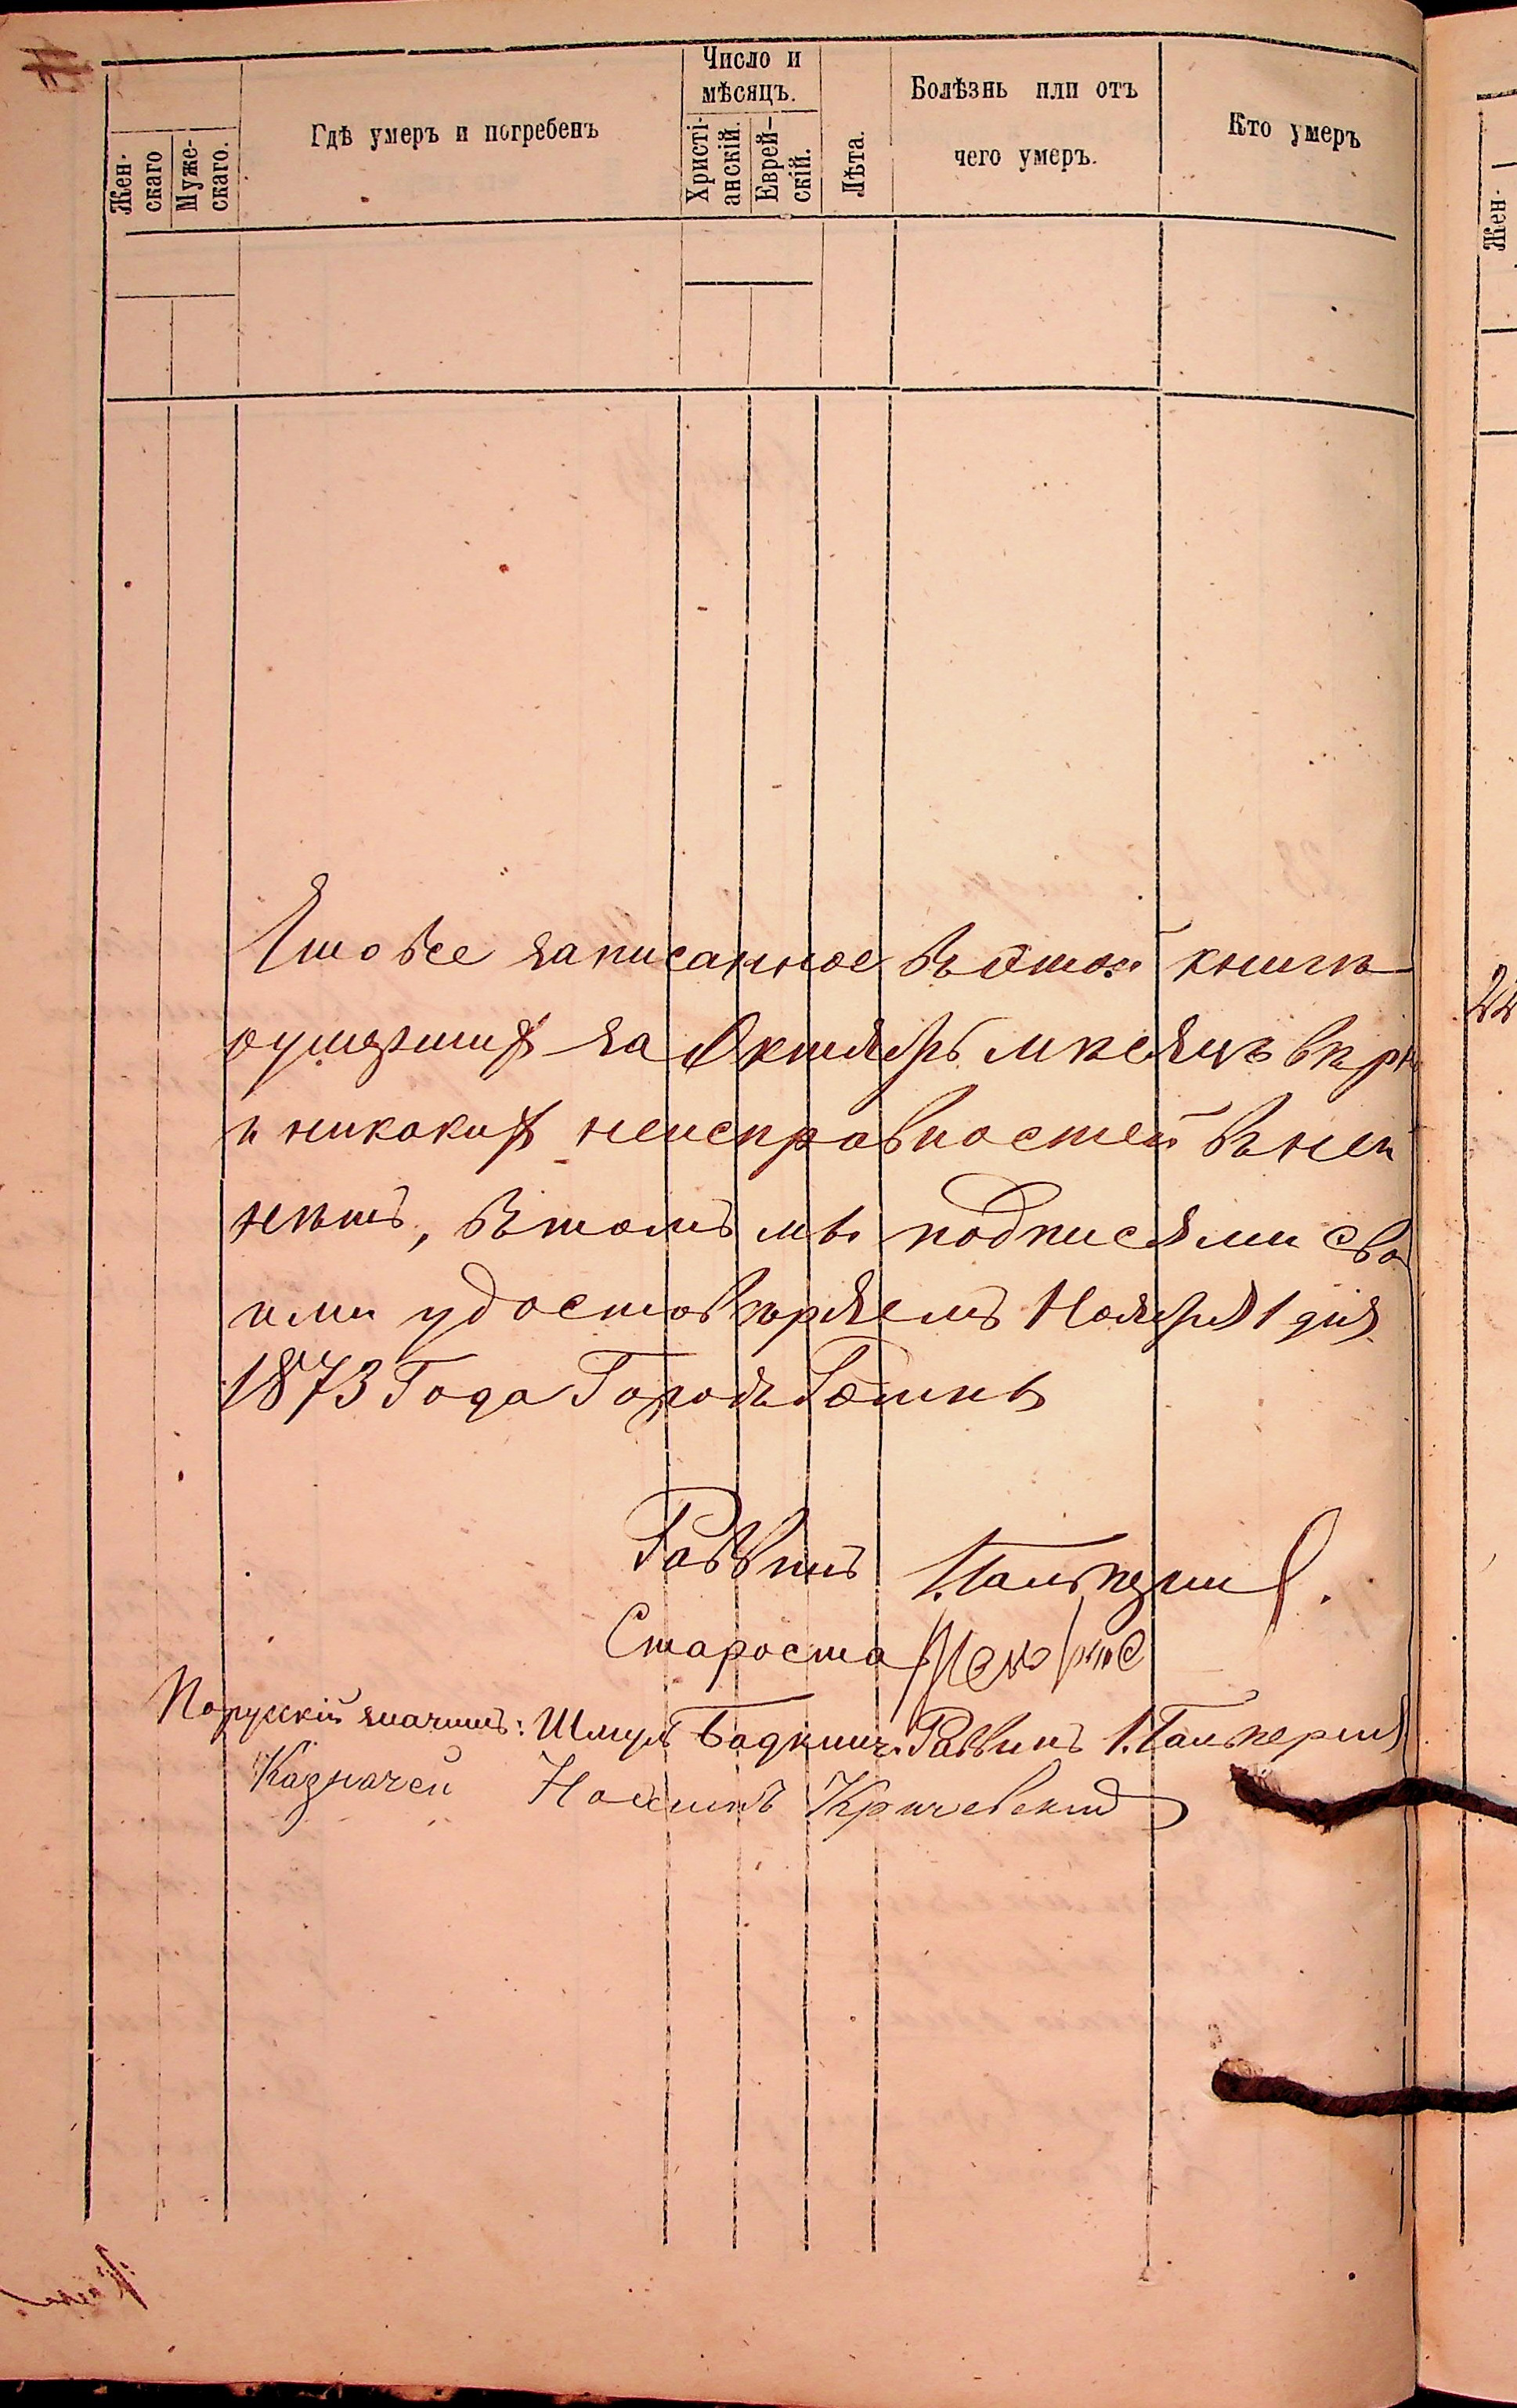 Число и
мѣсяцъ.
Болѣзнь или отъ
чего умеръ.
Кто умеръ
Гдѣ умеръ и погребенъ
Жен-
скаго
Муже-
скаго.
Христі-
анскій.
Еврей-
скій.
Лѣта.
Что все записанное въ этой книгѣ
о умершихъ за Октябрь мѣсяцъ вѣрно
и никакихъ неисправностей въ ней
нѣтъ, въ томъ мы подписями сво
ими удостовѣряемъ Ноября 1 дня
1873 Года Городъ
Раввинъ І. Гальперин
Староста
Порусскій значитъ: Шмуль Раввинъ І. Гальперинъ
Казначей Кричевский
Жен-